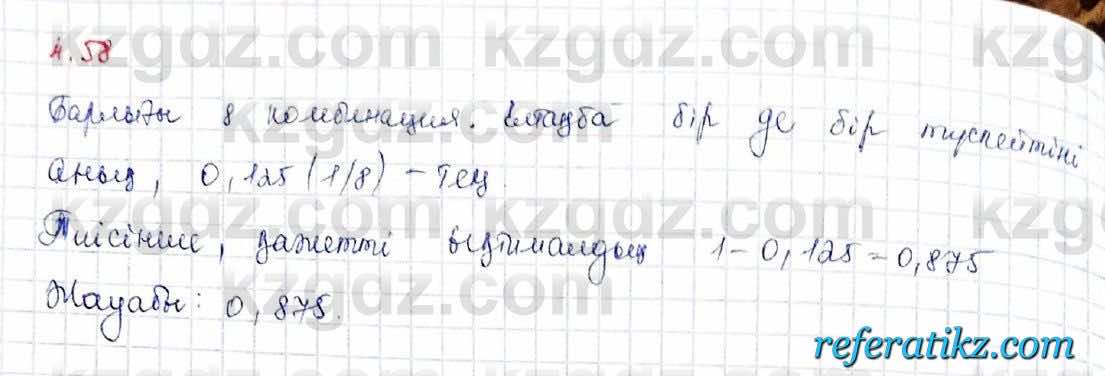 4.58
Барлығы 8 комбинация. Елтаңба бір де бір түспейтіні
анық, 0,125 (1/8) - тең.
Тиісінше, қажетті ықтималдық 1-0,125=0,875
Жауабы: 0,875.
kzgdz.com kzgdz.com kzgdz.com
referatikz.com